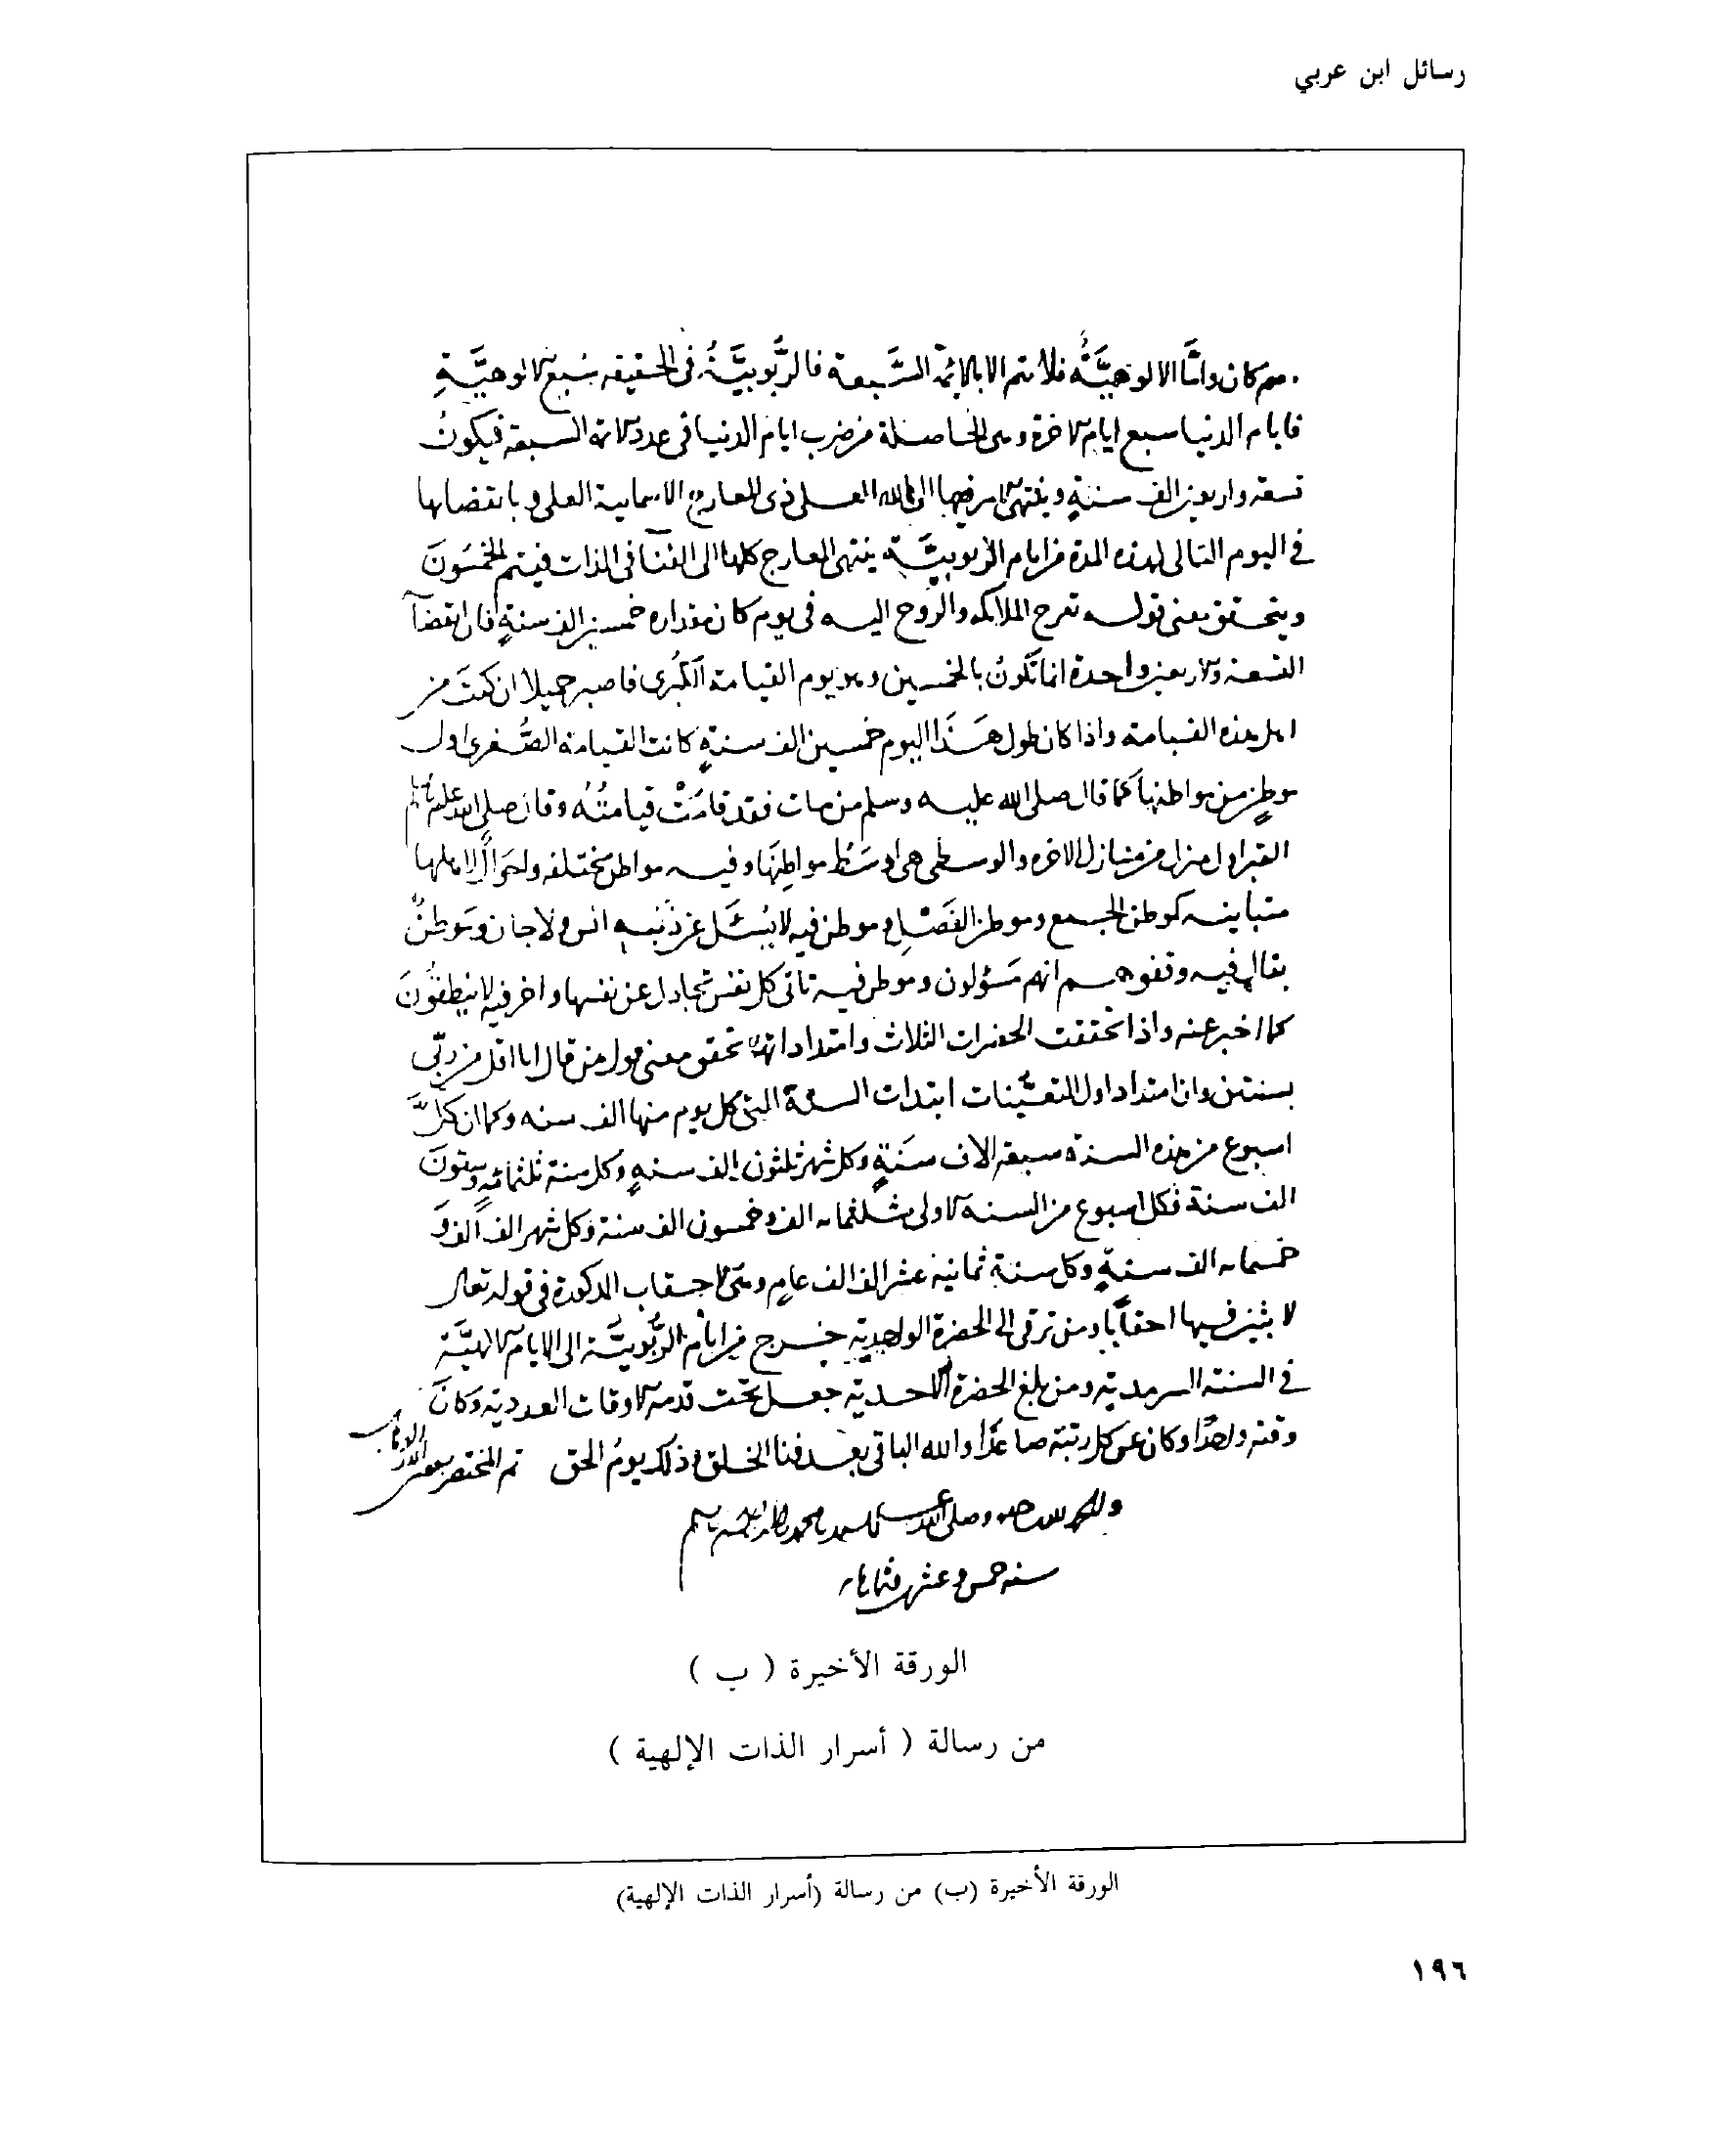 رسائل ابن عربي
كان واما الالوهيَّة فلا تتم الا بالائمة السَّبعة فالرُّبوبيَّةُ فى الحقيقه سُبع الالوهيَّةِ
فايام الدنيا سبع ايام الاخرة وهى الحاصلة من ضرب ايام الدنيا فى عدد الائمة السبعة فيكونُ
تسعة واربعين الف سنةٍ وينتهى الامر فيها الى الله العلى ذى المعارج الاسمايية العلى وبانقضايها
فى اليوم التالى لهذه المدة من ايام الربوبيَّة ينتهى المعارج كلها الى الفنآ فى الذات فيتم الخمسُونَ
ويتحقق معنى قوله تعرج الملايكه والروح اليه فى يوم كان مقداره خمسين الف سنةٍ فان انقضآ
التسعة والاربعين واحدة انما تكونُ بالخمسين وهو يوم القيامة الكبرى فاصبر جميلا ان كنتَ من
اهل هذه القيامة واذا كان طول هَذَا اليوم خمسين الف سنةٍ كانت القيامة الصُّغرى اول
موطنٍ من مواطنها كما قال صلى الله عليه وسلم من مات فقد قامَتْ قيامتُهُ وقال صلى الله عليه وسلم
القبر اول منزل من منازل الاخره والوسطى هى اوسَطُ مواطِنهَا وفيه مواطن مختلفه واحوَالٌ لاهلها
متباينه كموطن الجمع وموطن الفَصْلِ وموطن فيه لا يُسْئَل عن ذَنْبِه انس ولا جان ومَوطنٌ
يقال فيه وقفوهم انهم مَسْؤلون وموطن فيه تاتى كل نفس تجادل عن نفسها واخر فيه لا ينطقُونَ
كما اخبر عنه واذا تحققت الحضرات الثلاث وامتداداتها تحقق معنى قول من قال انا اقل من ربّى
بسنتين وان امتداد اول التعيُّنات ابتدات السنة التى كل يوم منها الف سنه وكما ان كلَّ
اسبوع من هذه السنة سبعة الاف سَنَةٍ وكل شهر ثلثون الف سنهٍ وكل سنة ثلثمائهٍ وستونَ
الف سنة فكل اسبوع من السنه الاولى ثلثمايه الف وخمسون الف سنة وكل شهر الف الف وَ
خمسمايه الف سنةٍ وكل سنةٍ ثمانية عشر الف الف عامٍ وهى الاحقاب المذكورة فى قوله تعالى
لابثين فيها احقاباً ومن ترقى الى الحضرة الواحدية خرج من ايام الرُّبوبيَّة الى الايام الالهيَّة
فى السنة السرمدية ومن بلغ الحضرة الاحدية جعل تحت قدمه الاوقات العددية وكانَ
وقته واحدًا وكان عن كل رتبة صاعدًا والله الباقى بعد فنا الخلق وذلك يومُ الحق تم المختصر
سنه خمس وعشر
الورقة الأخيرة ( ب )
من رسالة ( أسرار الذات الإلهية )
الورقة الأخيرة (ب) من رسالة (أسرار الذات الإلهية)
١٩٦